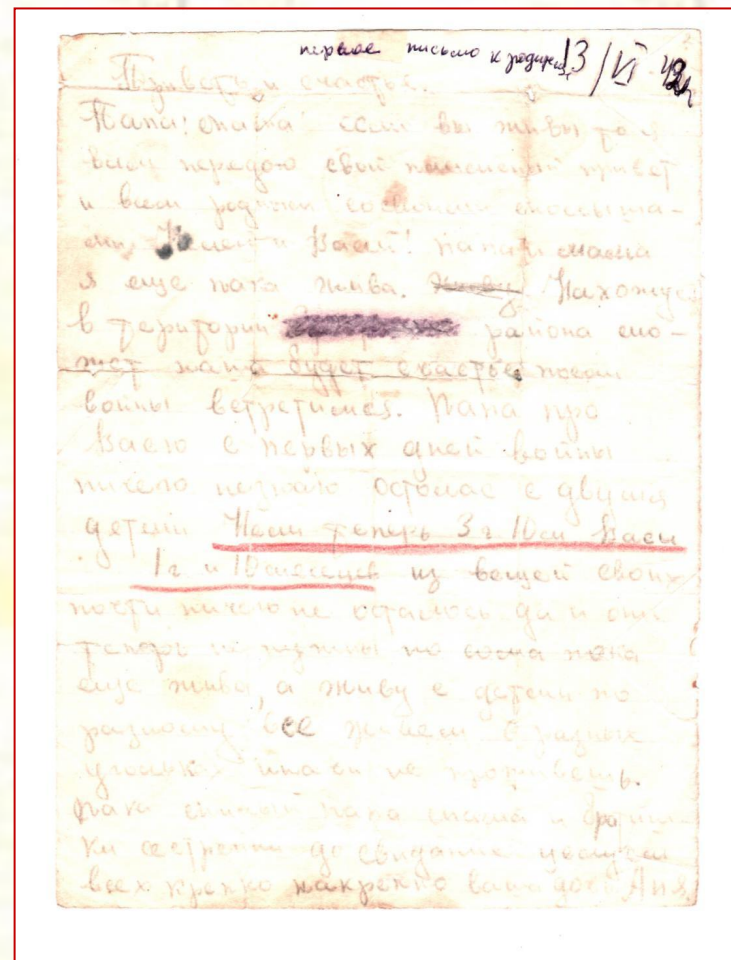 первое письмо к родит. 13/VI 42г
Привет и счастье.
Папа! мама если вы живы то я
вам передаю свой пламенный привет
и всем родным
Вася! папа и мама
я еще пока жива. Нахожусь
в територии района мо-
жет папа будет счастье после
войны встретимся. Папа про
Васю с первых дней войны
ничего незнаю осталас с двумя
детьми теперь 3 г 10 м Васи
1 г и 10 месяцев из вещей своих
почти ничего не осталось да и они
теперь не нужны но сама пока
еще жива, а живу с детьми по
разному все живем в разных
не проживешь.
пока папа мама и братиш-
ки сестренки до свидание целую
всех крепко накрепко ваша доч Аня